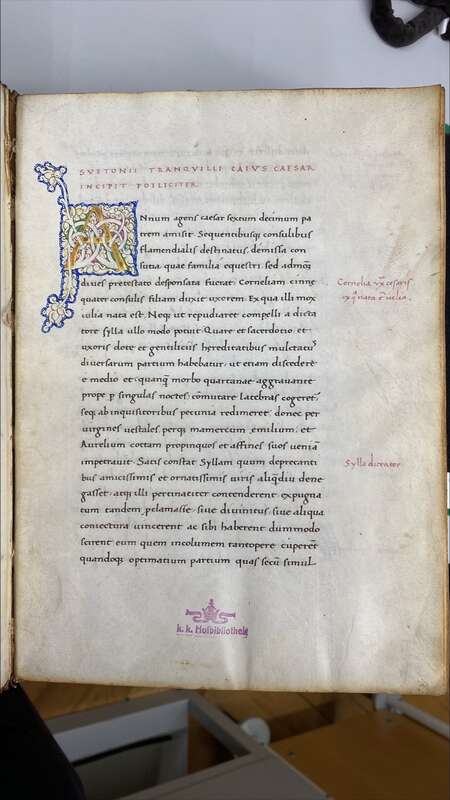 SVETONII TRANQVILLI CAIVS CAESAR
INCIPIT FOELICITER
ANnum agens caesar sextum decimum pa
trem amisit. Sequentibusq; consulibus
flamendialis destinatus. demissa con
sutia. quae familia equestri. sed admodũ
diues pretextato desponsata fuerat. Corneliam cinne
quater consulis filiam duxit uxorem. Ex qua illi mox
iulia nata est. Neq; ut repudiaret compelli a dicta
tore sylla ullo modo potuit. Quare et sacerdotio. et
uxoris dote et gentiliciis hereditatibus mulctatus
diuersarum partium habebatur. ut etiam discedere
e medio et. quanq̃ morbo quartanae aggrauante
prope p singulas noctes cõmutare latebras cogeret̃
seq; ab inquisitoribus pecunia redimeret. donec per
uirgines uestales. perq; mamercum emilium. et
Aurelium cottam propinquos et affines suos ueniã
impetrauit. Satis constat Syllam quum deprecanti
bus amicissimis et ornatissimis uiris aliq̃diu dene
gasset. atq; illi pertinaciter contenderent expugna
tum tandem pclamasse. siue diuinitus. siue aliqua
coniectura uincerent ac sibi haberent dummodo
scirent eum quem incolumem tantopere cuperẽt
quandoq; optimatium partium quas secũ simul
Cornelia vx̃ cesaris
ex q̃ nata ẽ iulia.
Sylla dictator
k. k. Hofbibliothek